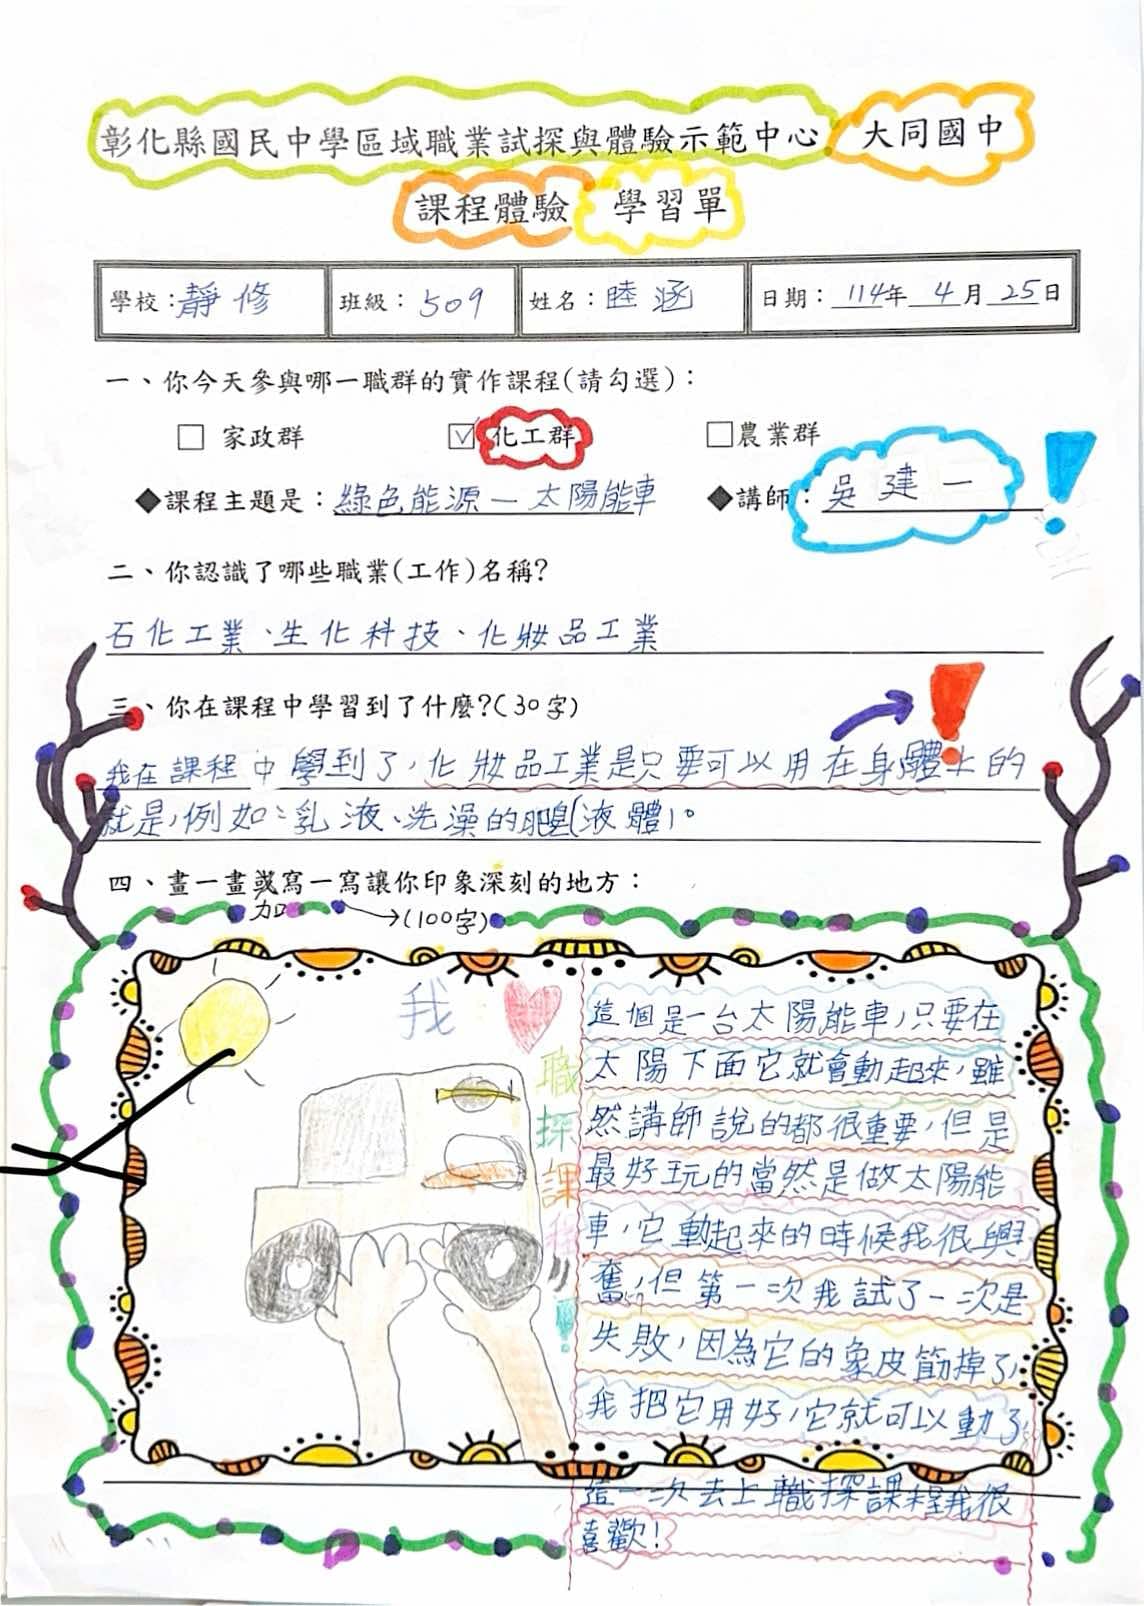 彰化縣國民中學區域職業試探與體驗示範中心 大同國中
課程體驗 學習單
學校：靜修 班級：509 姓名：睦涵 日期：114年4月25日
一、你今天參與哪一職群的實作課程(請勾選)：
□ 家政群 ☑ 化工群 □ 農業群
◆課程主題是：綠色能源—太陽能車 ◆講師：吳建一
二、你認識了哪些職業(工作)名稱?
石化工業、生化科技、化妝品工業
三、你在課程中學習到了什麼?(30字)
我在課程中學到了，化妝品工業是只要可以用在身體上的
就是，例如：乳液、洗澡的肥皂(液體)。
四、畫一畫或寫一寫讓你印象深刻的地方：
加
→(100字)
我
職探課程
!
這個是一台太陽能車，只要在
太陽下面它就會動起來，雖
然講師說的都很重要，但是
最好玩的當然是做太陽能
車，它動起來的時候我很興
奮，但第一次我試了一次是
失敗，因為它的象皮筋掉了，
我把它用好，它就可以動了
這一次去上職探課程我很
喜歡！